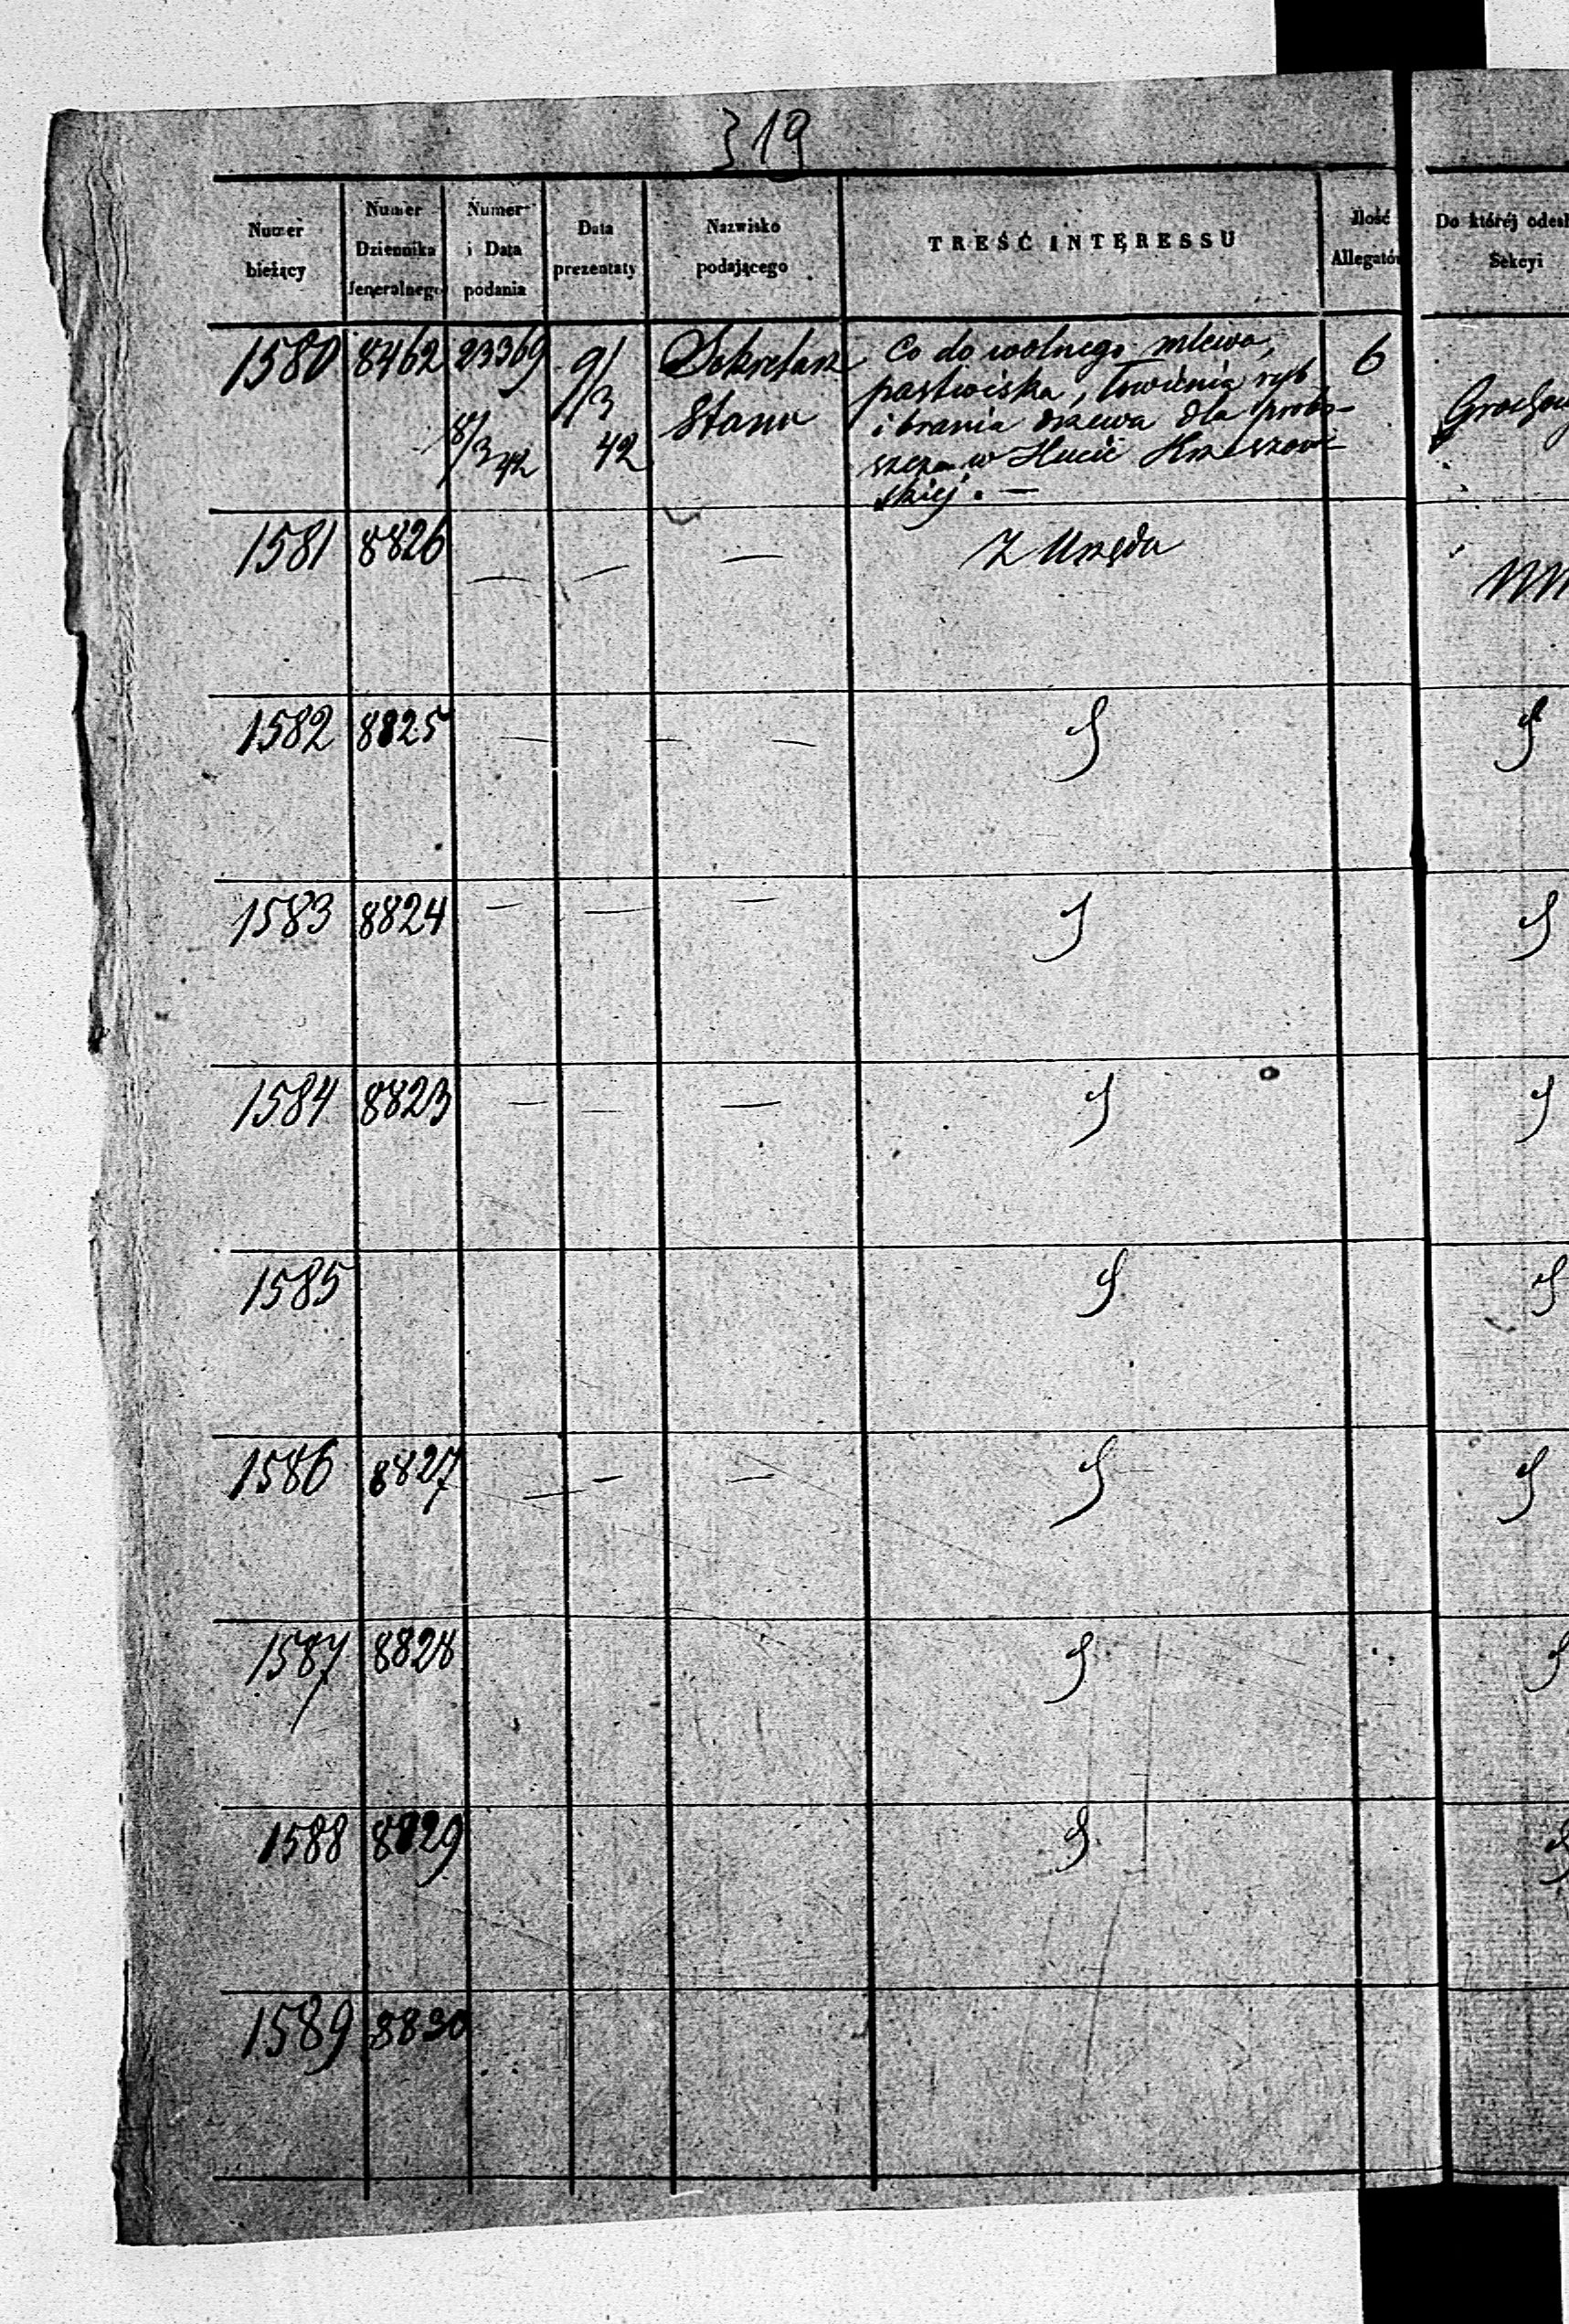 319
Numer bieżący
Numer Dziennika Jeneralnego
Numer i Data podania
Data prezentaty
Nazwisko podającego
TREŚĆ INTERESSU
Ilość Allegatów
Do któréj odesł
Sekcyi
1580 8462 23369 8/3 42 9/3 42 Sekretarz Stanu
Co do wolnego mlewa,
pastwiska, łowienia ryb
i brania drzewa dla probo-
szcza w Hucie
skiej. —
6
1581 8826 — — — Z Urzędu
1582 8825 — — —
1583 8824 — — —
1584 8823 — — —
1585
1586 8827 — — —
1587 8828
1588 8829
1589 8830